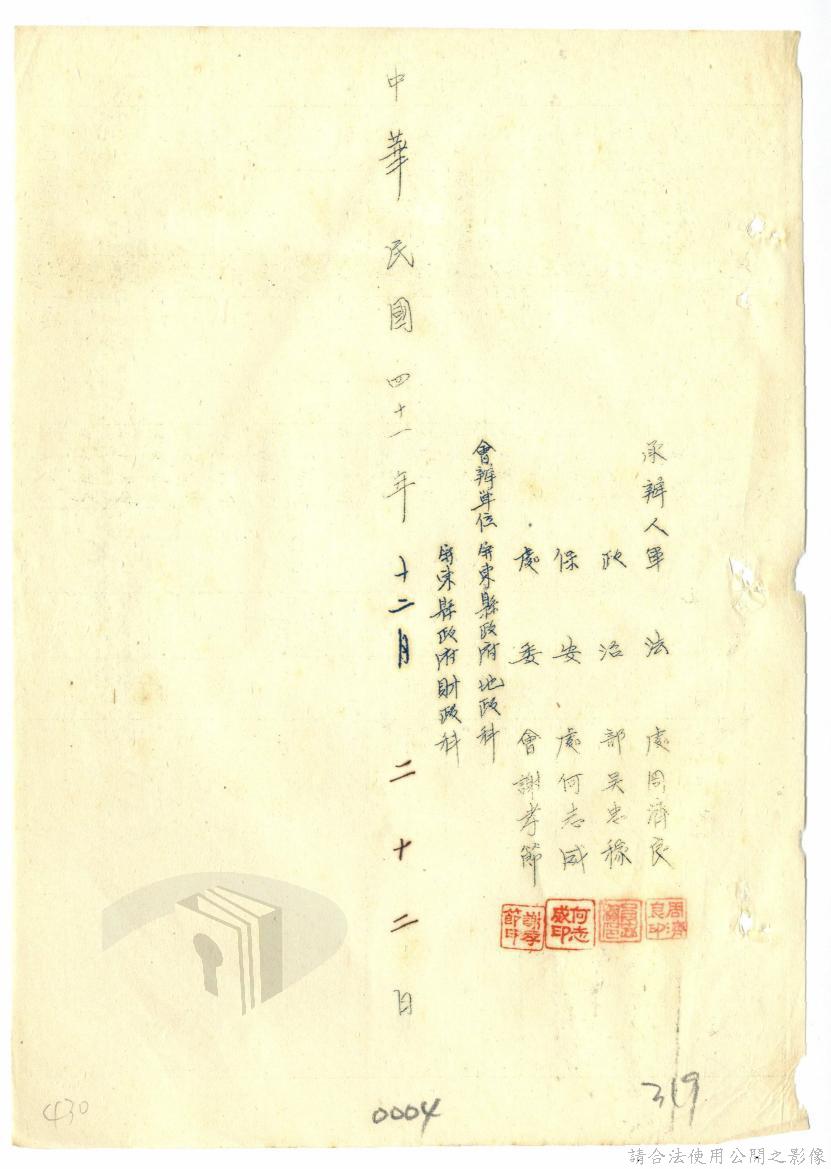 承辦人軍法處周濟良
政治部吴忠稼
保安處何志威
處委會謝孝節
周濟良印
何志威印
謝孝節印
會辦單位屏東縣政府地政科
屏東縣政府財政科
中華民國四十一年十二月二十二日
430
0004
319
請合法使用公開之影像